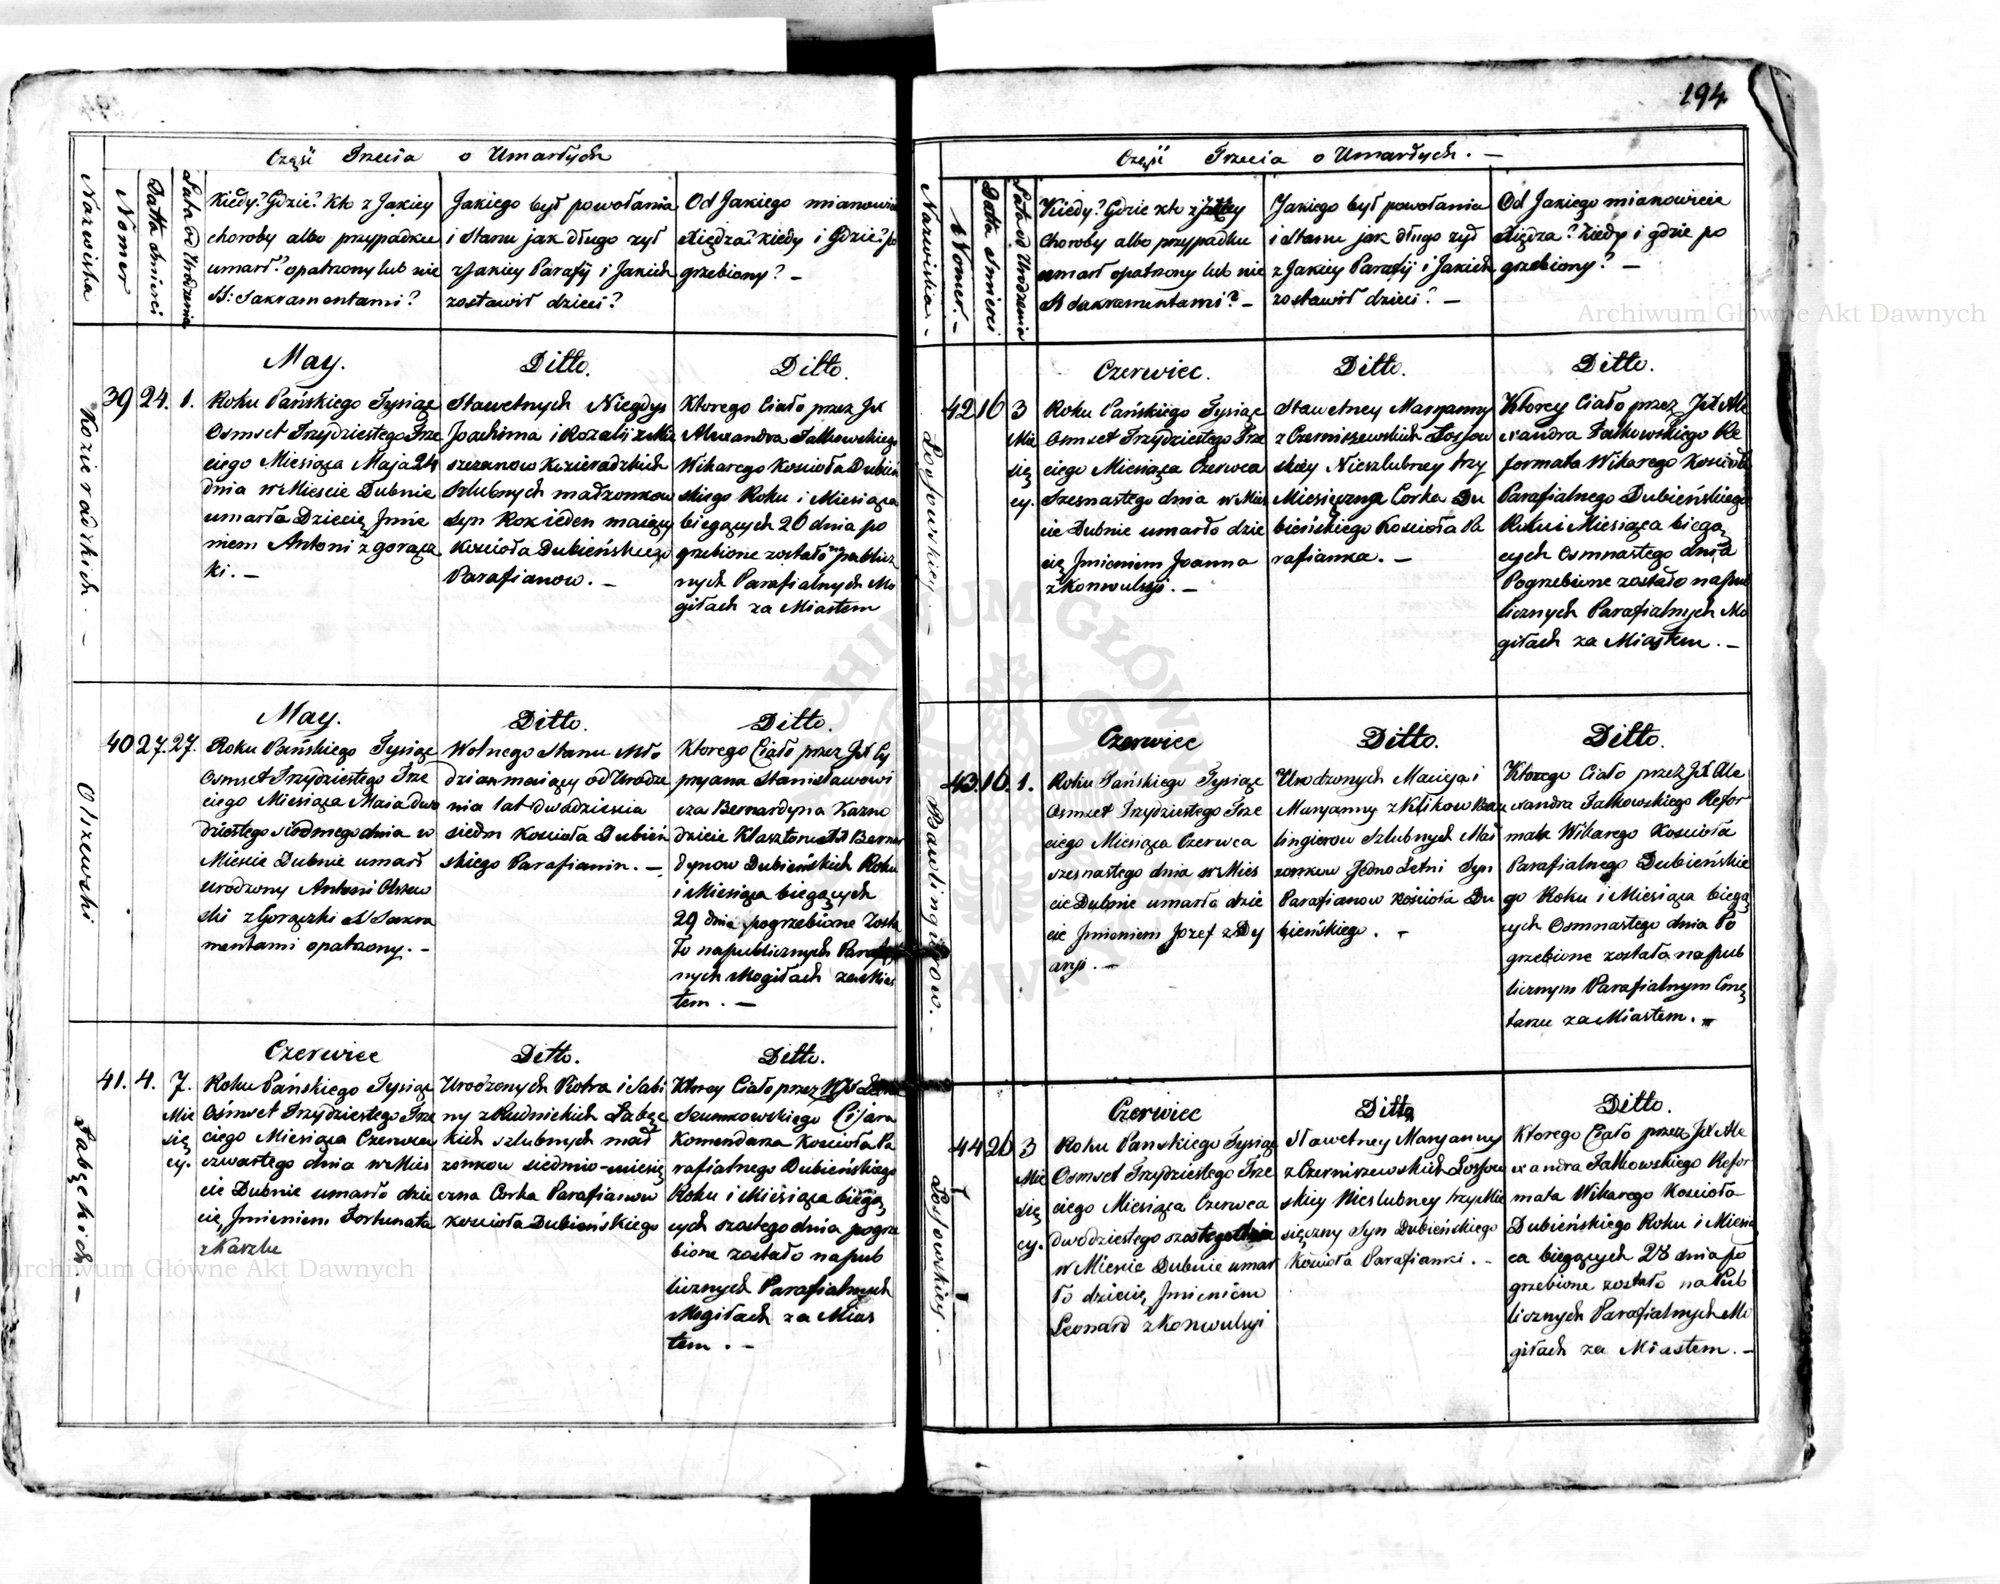 194
Część Trzecia o Umarłych
Nazwiska
Nomer
Datta śmierci
Lata od Urodzenia
Kiedy? Gdzie? Kto z Jakiey
choroby albo przypadku
umarł? opatrzony lub nie
SS: Sakramentami?
Jakiego był powołania
i Stanu jak długo żył
z Jakiey Parafij i Jakich
zostawił dzieci?
Od Jakiego mianowicie
Xiędza? kiedy i Gdzie? po
grzebiony? –
Kozieradzkich. –
39
24.
1.
May.
Roku Pańskiego Tysiąc
Osmset Trzydziestego Trze
ciego Miesiąca Maja 24
dnia w Mieście Dubnie
umarła Dziecię Jmie
niem Antoni z gorącz
ki. –
Ditto.
Sławetnych Niegdys
Joachima i Rozalij z Mis
szczanow Kozieradzkich
szlubnych małżonkow
Syn Rok ieden maiący
Kościoła Dubieńskiego
Parafianow. –
Ditto.
Ktorego Ciało przez JX
Alexandra Fałkowskiego
Wikarego Kościoła Dubień
skiego Roku i Miesiąca
biegących 26 dnia po
grzebione zostało na publicz
nych Parafialnych Mo
giłach za Miastem
Olszewski
40
27.
27.
May.
Roku Pańskiego Tysiąc
Osmset Trzydziestego Trze
ciego Miesiąca Maia dwu
dziestego siodmego dnia w
Miescie Dubnie umarł
urodzony Antoni Olszew
ski z Gorączki SS Sakra
mentami opatrzony. –
Ditto.
Wolnego Stanu Mło
dzian maiący od Urodze
nia lat dwadziescia
siedm Kościoła Dubień
skiego Parafianin. –
Ditto.
Ktorego Ciało przez JX Cy
pryana Stanisławowi
cza Bernardyna Kazno
dzieie Klasztoru XX Bernar
dynow Dubieńskich Roku
i Miesiąca biegących
29 dnia pogrzebione zosta
ło na publicznych Parafial
nych Mogiłach za Mias
tem. –
Łabęckich –
41.
4.
7.
Mie
się
cy.
Czerwiec
Roku Pańskiego Tysiąc
Osmset Trzydziestego Trze
ciego Miesiąca Czerwca
czwartego dnia w Mies
cie Dubnie umarło dzie
cię Jmieniem Fortunata
z Kaszlu
Ditto.
Urodzonych Piotra i Sabi
ny z Rudnickich Łabęc
kich szlubnych mał
żonkow siedmio-miesię
czna Corka Parafianow
Kościoła Dubieńskiego
Ditto.
Ktorey Ciało przez WJX Leona
Szumkowskiego
Komendarza Kościoła Pa
rafialnego Dubieńskiego
Roku i Miesiąca biegą
cych szostego dnia pogrze
bione zostało na pub
licznych Parafialnych
Mogiłach za Mias
tem. –
Część Trzecia o Umarłych. –
Nazwiska. –
Nomer. –
Data Smierci
Lata od Urodzenia
Kiedy? Gdzie kto z Jakiey
choroby albo przypadku
umarł opatrzony lub nie
SS Sakramentami? –
Jakiego był powołania
i Stanu jak długo żył
z Jakiey Parafij i Jakich
zostawił dzieci? –
Od Jakiego mianowicie
Xiędza? Kiedy i gdzie po
grzebiony? –
Łosowskiey. –
42
16
3
Mie
się
cy.
Czerwiec.
Roku Pańskiego Tysiąc
Osmset Trzydziestego Trze
ciego Miesiąca Czerwca
Szesnastego dnia w Mies
cie Dubnie umarło dzie
cię Jmieniem Joanna
z Konwulsyi. –
Ditto.
Sławetney Maryanny
z Czerniszewskich Łosow
skiey Nieszlubney trzy
Miesięczna Corka Du
bieńskiego Kościoła Pa
rafianka. –
Ditto.
Ktorey Ciało przez JX Ale
xandra Fałkowskiego Re
formata Wikarego Kościoła
Parafialnego Dubieńskiego
Roku i Miesiąca biegą
cych Osmnastego dnia
Pogrzebione zostało na pub
licznych Parafialnych Mo
giłach za Miastem. –
Bawlingierow. –
43.
16.
1.
Czerwiec
Roku Pańskiego Tysiąc
Osmset Trzydziestego Trze
ciego Miesiąca Czerwca
szesnastego dnia w Mies
cie Dubnie umarło dzie
cie Jmieniem Jozef z Dy
aryi. –
Ditto.
Urodzonych Macieja i
Maryanny z Klikow Baw
lingierow Szlubnych Mał
żonkow Jedno Letni Syn
Parafianow Kościoła Du
bieńskiego. –
Ditto.
Ktorego Ciało przez JX Ale
xandra Fałkowskiego Refor
mata Wikarego Kościoła
Parafialnego Dubieńskie
go Roku i Miesiąca biegą
cych Osmnastego dnia Po
grzebione zostało na pub
licznym Parafialnym Cmę
tarzu za Miastem. –
Łosowskiey. –
44
26
3
Mie
się
cy.
Czerwiec
Roku Panskiego Tysiąc
Osmset Trzydziestego Trze
ciego Miesiąca Czerwca
dwódziestego szostego dnia
w Miescie Dubnie umar
ło dziecię Jmieniem
Leonard z Konwulsyi
Ditto
Sławetney Maryanny
z Czerniszewskich Łosow
skiey Nieslubney trzy Mie
sięczny Syn Dubieńskiego
Kościoła Parafianki. –
Ditto.
Ktorego Ciało przez JX Ale
xandra Fałkowskiego Refor
mata Wikarego Kościoła
Dubieńskiego Roku i Miesią
ca biegących 28 dnia po
grzebione zostało na Pub
licznych Parafialnych Mo
giłach za Miastem. –
Archiwum Główne Akt Dawnych
Archiwum Główne Akt Dawnych